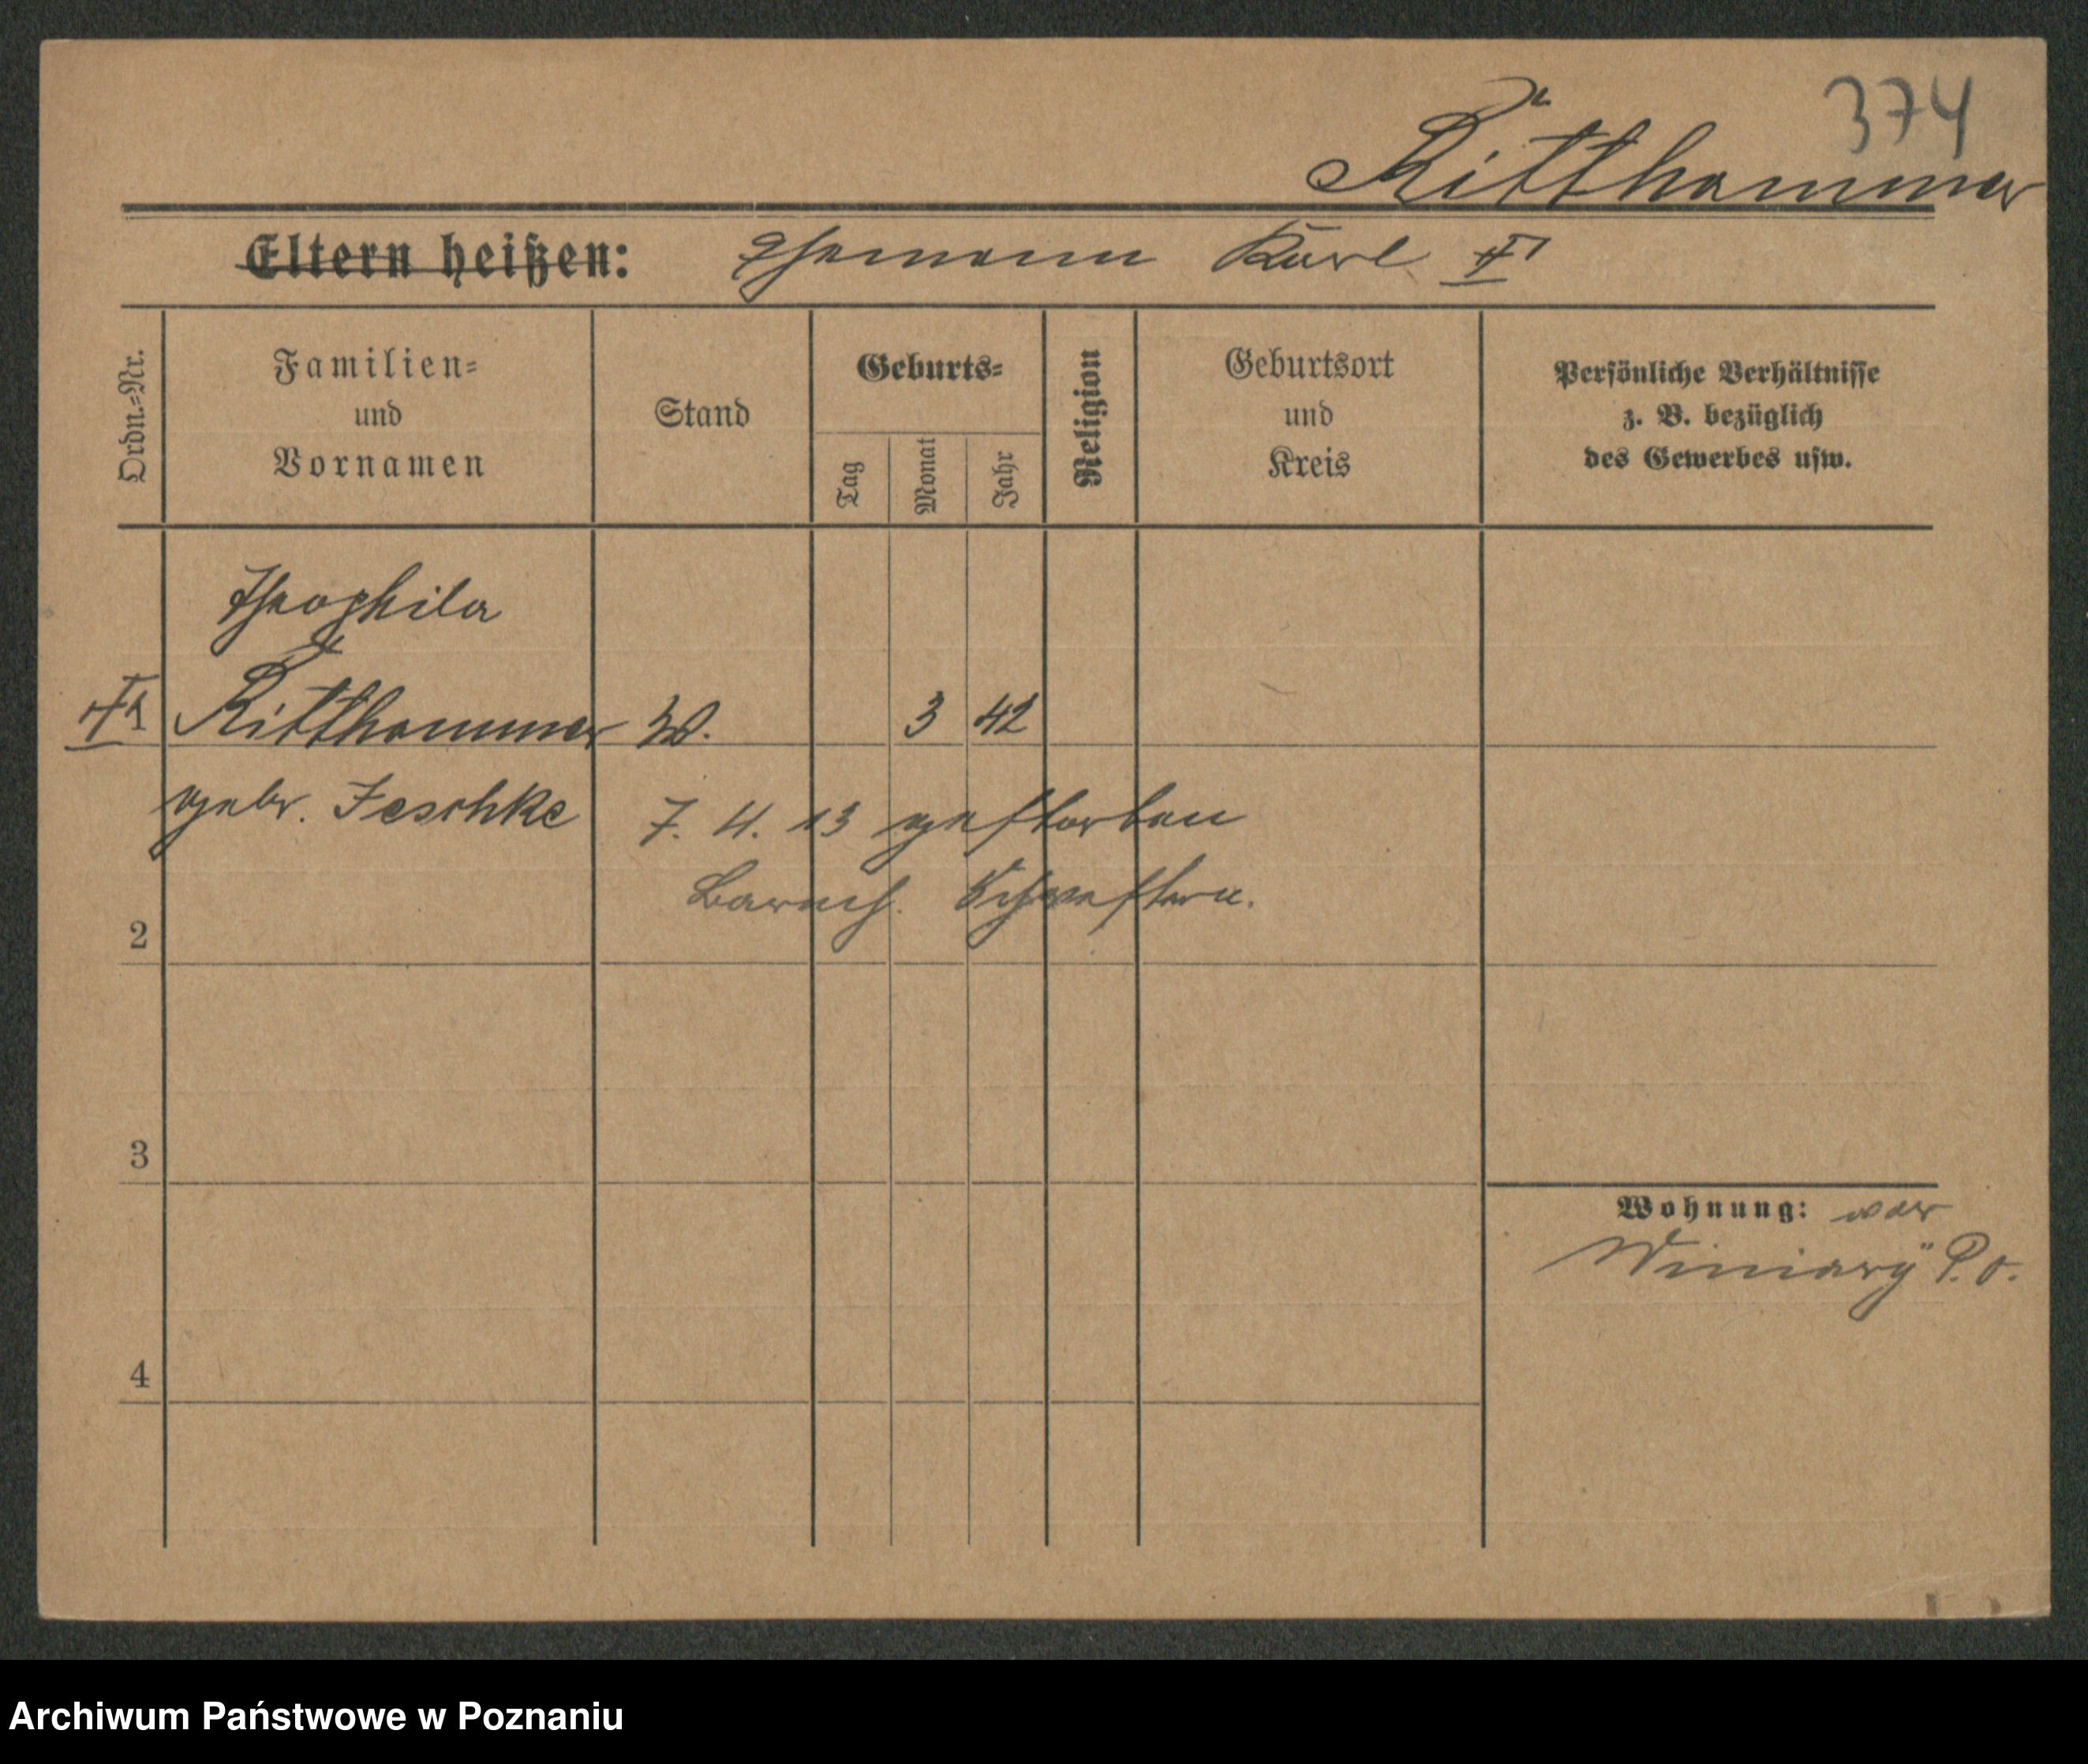 374
Ritthammer
Eltern heißen: Ehemann Karl
Ordn.-Nr.
Familien-
und
Vornamen
Stand
Geburts-
Tag
Monat
Jahr
Religion
Geburtsort
und
Kreis
Persönliche Verhältnisse
z. B. bezüglich
des Gewerbes usw.
Theophila
1 Ritthammer W. 3 42
gebr. Jeschke 7. 4. 13 gestorben
Barmh. Schwestern.
2
3
4
Wohnung:
Winiary P. O.
Archiwum Państwowe w Poznaniu